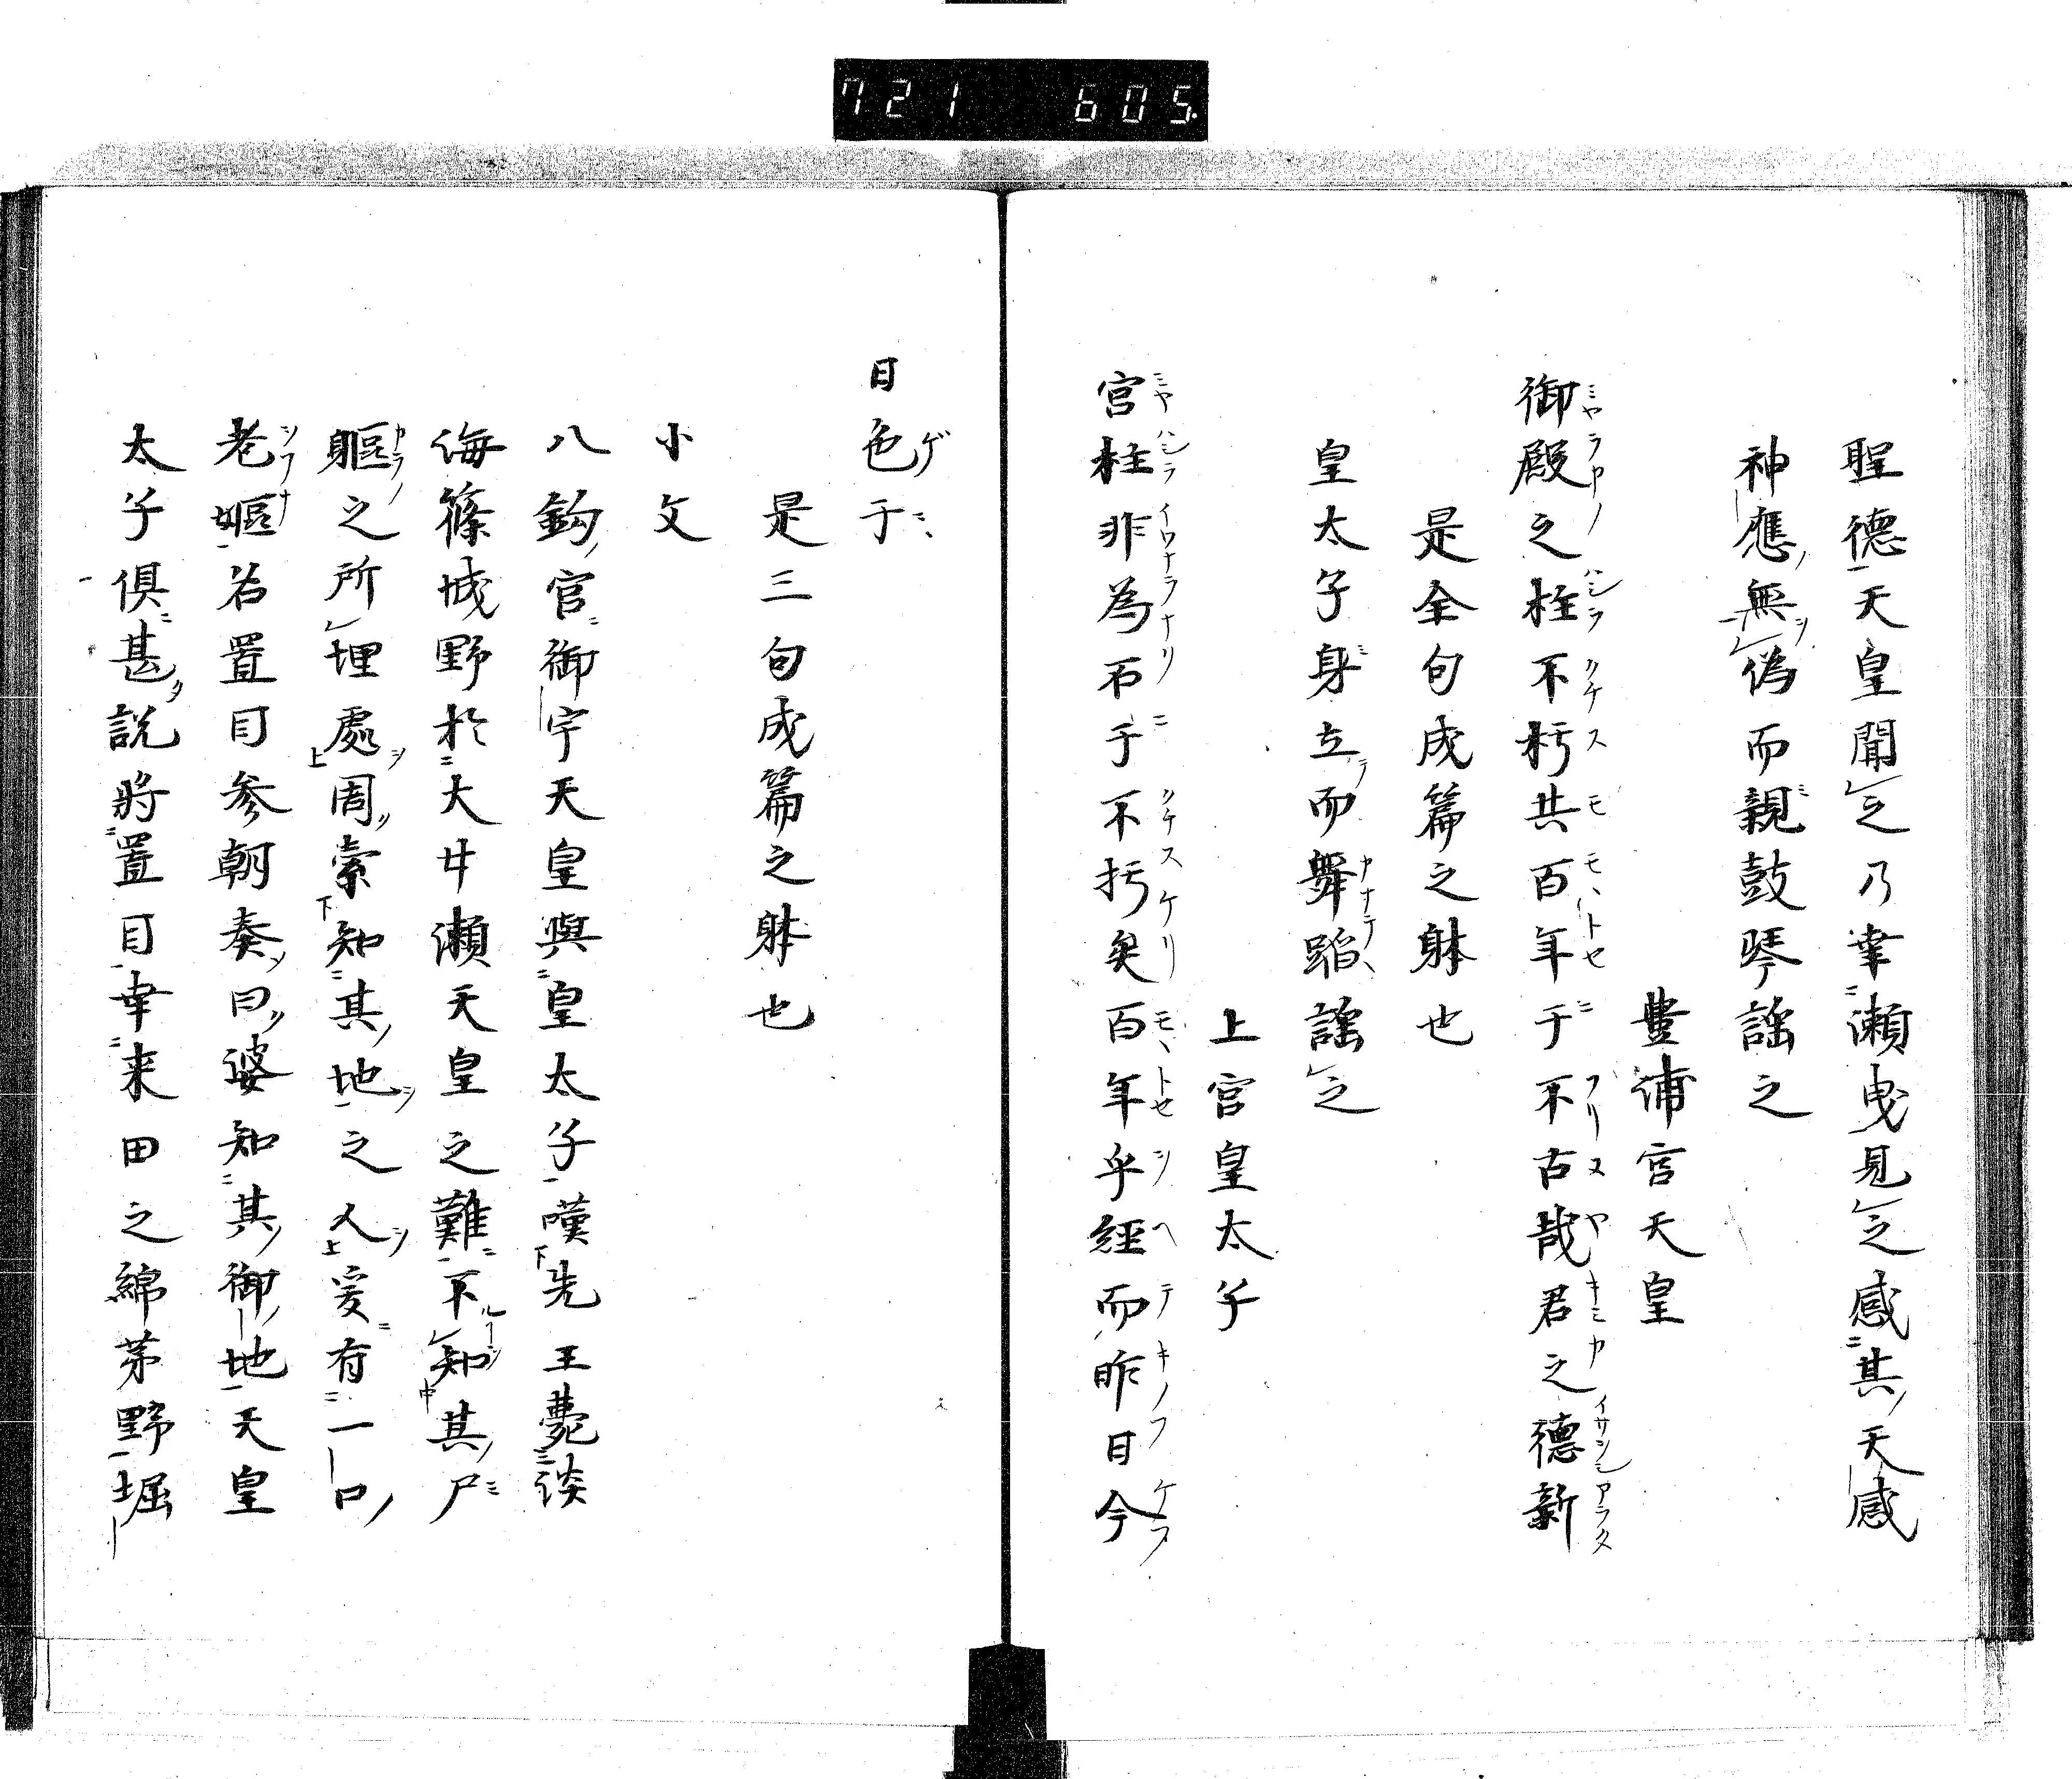 721 605
聖德天皇聞之乃幸瀬曳見之感其天感
神應無偽而親鼓琴謡之
豊浦宮天皇
御殿之柱不朽共百年于不古哉君之德新
是全句成篇之躰也
皇太子身立而舞蹈謡之
上宮皇太子
宮柱非為石于不朽矣百年乎經而昨日今
日色于
是三句成篇之躰也
小文
八釣宮御宇天皇與皇太子嘆先王薨談
侮篠城野於大廾瀬天皇之難不知其尸
軀之所埋處周索知其地之人爰有一口
老嫗名置目参朝奏曰婆知其御地天皇
太子俱甚説将置目幸来田之綿茅野堀